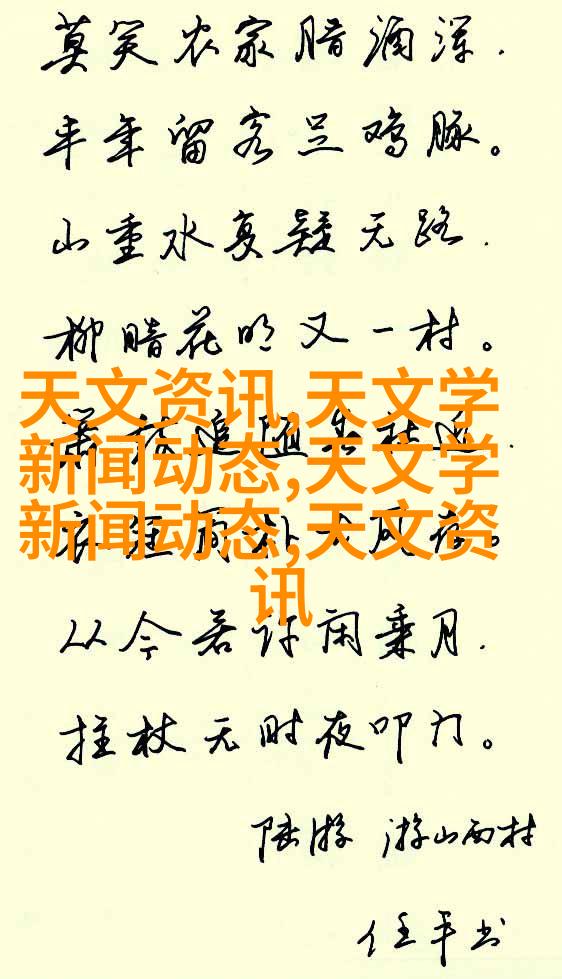 莫笑农家腊酒浑.
丰年留客足鸡豚。
山重水复疑无路.
柳暗花明又一村。
天文资讯,天文学
追随 社近.
新闻动态,天文学
新闻动态,天文资
讯
从今若许闲乘月.
拄杖无时夜叩门。
陆游 游山西村
任平书